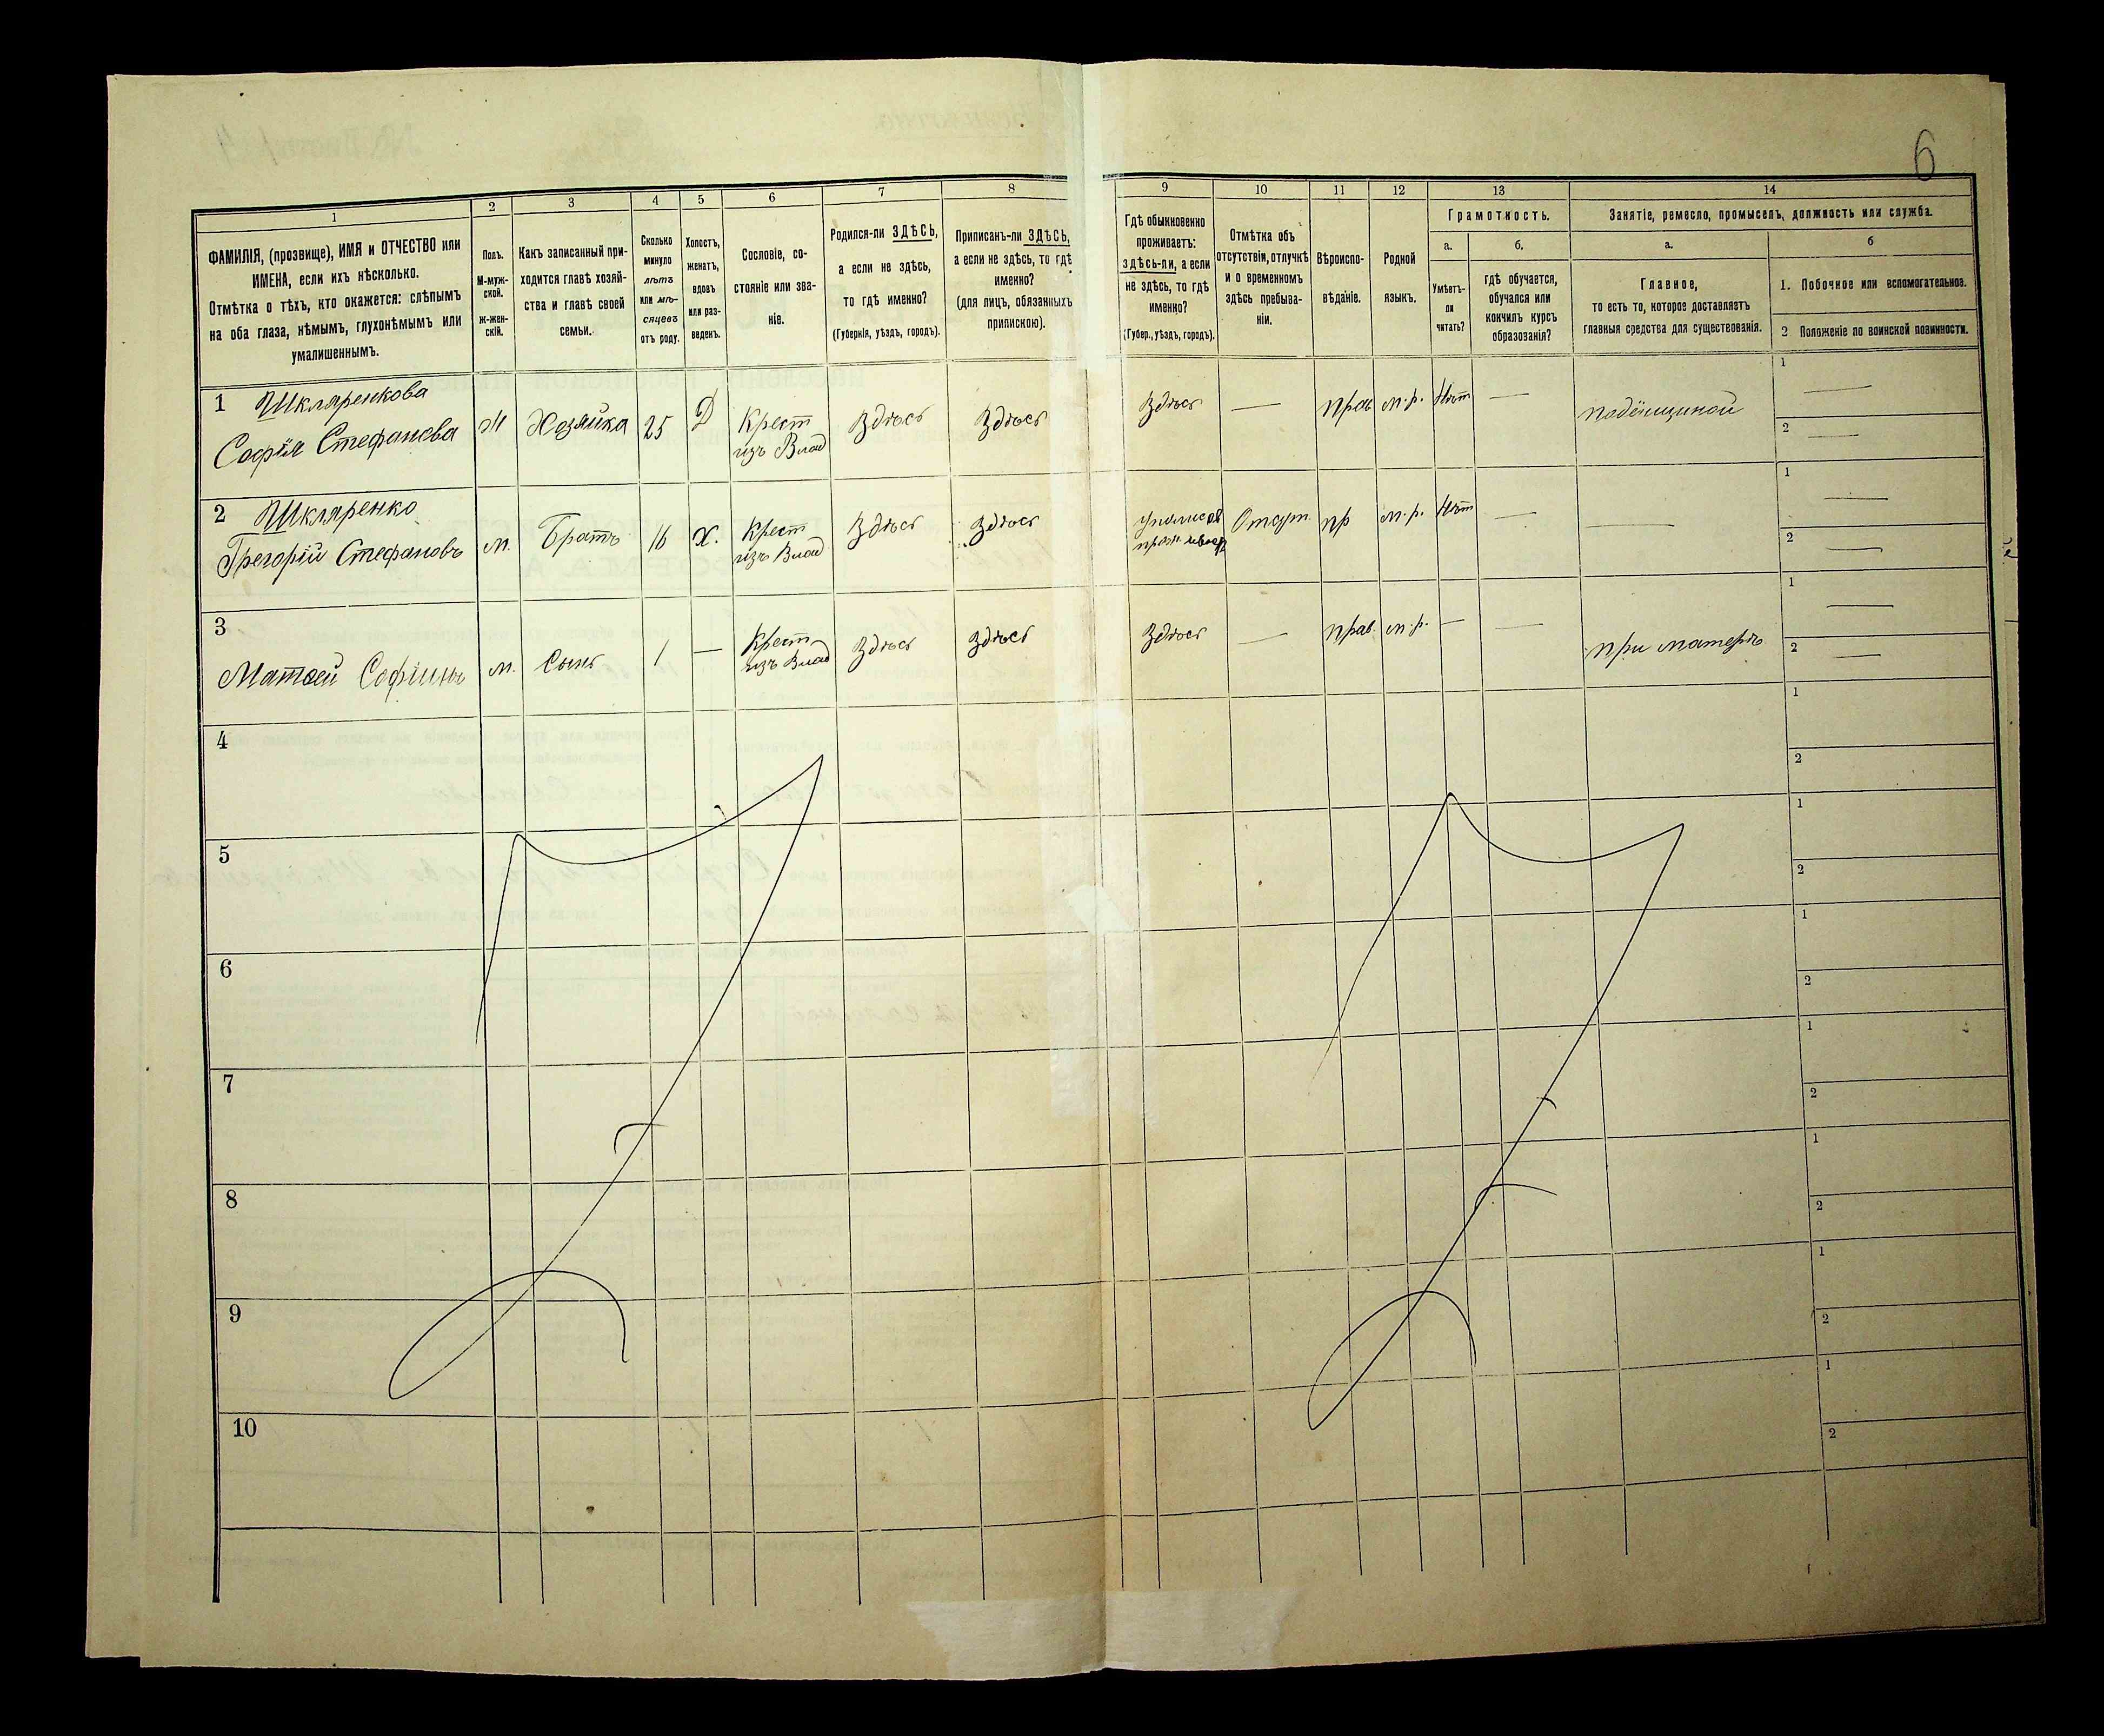 6
1
2
3
4
5
6
7
8
9
10
11
12
13
14
ФАМИЛІЯ, (прозвище), ИМЯ и ОТЧЕСТВО или
ИМЕНА, если ихъ нѣсколько.
Отмѣтка о тѣхъ, кто окажется: слѣпымъ
на оба глаза, нѣмымъ, глухонѣмымъ или
умалишеннымъ.
Полъ.
М-муж-
ской.
Ж-жен-
скій.
Какъ записанный при-
ходится главѣ хозяй-
ства и главѣ своей
семьи.
Сколько
минуло
лѣтъ
или мѣ-
сяцевъ
отъ роду.
Холостъ,
женатъ,
вдовъ
или раз-
веденъ.
Сословіе, со-
стояніе или зва-
ніе.
Родился-ли ЗДѢСЬ,
а если не здѣсь,
то гдѣ именно?
(Губернія, уѣздъ, городъ).
Приписанъ-ли ЗДѢСЬ,
а если не здѣсь, то гдѣ
именно?
(для лицъ, обязанныхъ
припискою).
Гдѣ обыкновенно
проживаетъ:
ЗДѢСЬ-ли, а если
не здѣсь, то гдѣ
именно?
(Губер., уѣздъ, городъ).
Отмѣтка объ
отсутствіи, отлучкѣ
и о временномъ
здѣсь пребыва-
ніи.
Вѣроиспо-
вѣданіе.
Родной
языкъ.
Грамотность.
а.
б.
Умѣетъ-
ли
читать?
гдѣ обучается,
обучался или
кончилъ курсъ
образованія?
Занятіе, ремесло, промыселъ, должность или служба.
а.
б
Главное,
то есть то, которое доставляетъ
главныя средства для существованія.
1. Побочное или вспомогательное.
2 Положеніе по воинской повинности.
1 Шкляренкова
Софія Стефанова
Ж
Хозяйка
25
Д
Крест
изъ Влад
Здѣсь
Здѣсь
Здѣсь
—
прав
м.р.
Нѣт
—
подёнщиной
1 —
2 —
2 Шкляренко
Григорій Стефановъ
м.
Братъ
16
Х.
Крест
изъ Влад
Здѣсь
Здѣсь
Отсут.
пр
м.р.
Нѣт
—
—
1 —
2 —
3
Матвей Софіинъ
м.
Сынъ
1
—
Крест
изъ Влад
Здѣсь
Здѣсь
Здѣсь
—
прав.
м.р.
—
—
при матерѣ
1 —
2 —
4
1
2
5
1
2
6
1
2
7
1
2
8
1
2
9
1
2
10
1
2